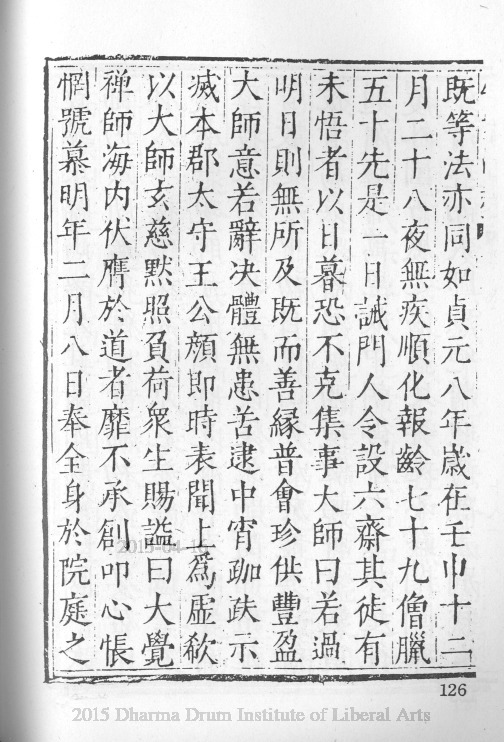 既等法亦同如貞元八年歲在壬申十二
月二十八夜無疾順化報齡七十九僧臘
五十先是一日誡門人令設六齋其徒有
未悟者以日暮恐不克集事大師曰若過
明日則無所及既而善緣普會珍供豐盈
大師意若辭决體無患苦逮中宵跏趺示
滅本郡太守王公顏即時表聞上為虛欷
以大師玄慈默照負荷衆生賜謚曰大覺
禅師海内伏膺於道者靡不承創叩心悵
惘號慕明年二月八日奉全身於院庭之
126
2015-04-
2015 Dharma Drum Institute of Liberal Arts